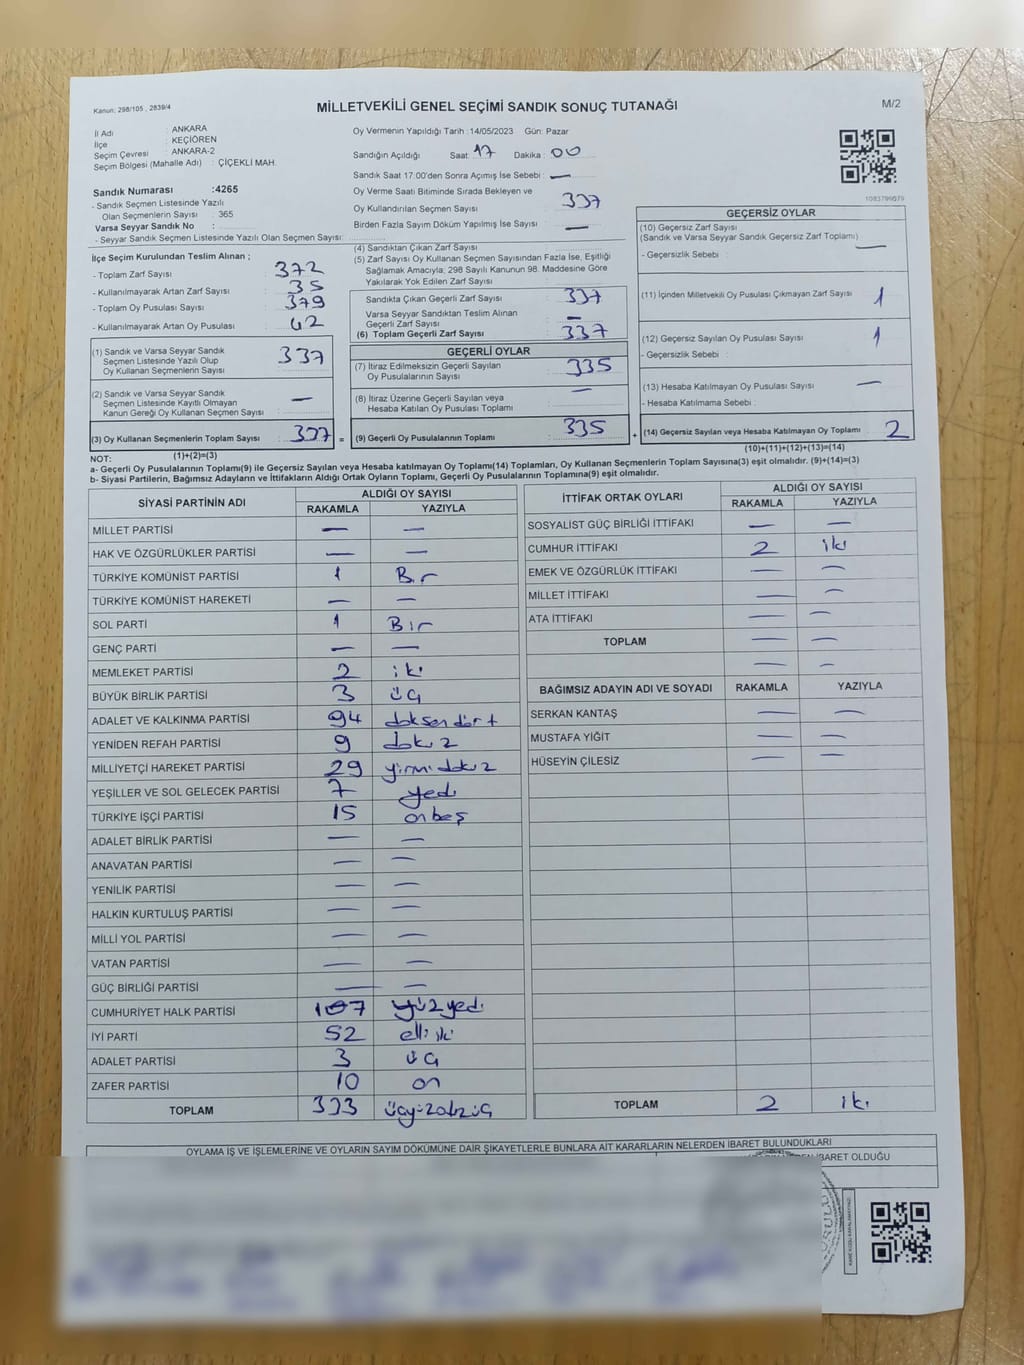 Kanun; 298/105 , 2839/4
MİLLETVEKİLİ GENEL SEÇİMİ SANDIK SONUÇ TUTANAĞI
M/2
İl Adı : ANKARA
İlçe : KEÇİÖREN
Seçim Çevresi : ANKARA-2
Seçim Bölgesi (Mahalle Adı) : ÇİÇEKLİ MAH.
Sandık Numarası :4265
- Sandık Seçmen Listesinde Yazılı
Olan Seçmenlerin Sayısı : 365
Varsa Seyyar Sandık No :
- Seyyar Sandık Seçmen Listesinde Yazılı Olan Seçmen Sayısı:
Oy Vermenin Yapıldığı Tarih :14/05/2023 Gün: Pazar
Sandığın Açıldığı Saat: 17 Dakika : 00
Sandık Saat 17:00'den Sonra Açımış İse Sebebi : —
Oy Verme Saati Bitiminde Sırada Bekleyen ve
Oy Kullandırılan Seçmen Sayısı : 337
Birden Fazla Sayım Döküm Yapılmış İse Sayısı : —
1083799079
İlçe Seçim Kurulundan Teslim Alınan ;
- Toplam Zarf Sayısı : 372
- Kullanılmayarak Artan Zarf Sayısı : 35
- Toplam Oy Pusulası Sayısı : 379
- Kullanılmayarak Artan Oy Pusulası : 42
(1) Sandık ve Varsa Seyyar Sandık
Seçmen Listesinde Yazılı Olup
Oy Kullanan Seçmenlerin Sayısı : 337
(2) Sandık ve Varsa Seyyar Sandık
Seçmen Listesinde Kayıtlı Olmayan
Kanun Gereği Oy Kullanan Seçmen Sayısı : —
(3) Oy Kullanan Seçmenlerin Toplam Sayısı : 337 =
(1)+(2)=(3)
(4) Sandıktan Çıkan Zarf Sayısı :
(5) Zarf Sayısı Oy Kullanan Seçmen Sayısından Fazla İse, Eşitliği
Sağlamak Amacıyla; 298 Sayılı Kanunun 98. Maddesine Göre
Yakılarak Yok Edilen Zarf Sayısı :
Sandıkta Çıkan Geçerli Zarf Sayısı : 337
Varsa Seyyar Sandıktan Teslim Alınan
Geçerli Zarf Sayısı : —
(6) Toplam Geçerli Zarf Sayısı : 337
GEÇERLİ OYLAR
(7) İtiraz Edilmeksizin Geçerli Sayılan
Oy Pusulalarının Sayısı : 335
(8) İtiraz Üzerine Geçerli Sayılan veya
Hesaba Katılan Oy Pusulası Toplamı : —
(9) Geçerli Oy Pusulalarının Toplamı : 335 +
GEÇERSİZ OYLAR
(10) Geçersiz Zarf Sayısı
(Sandık ve Varsa Seyyar Sandık Geçersiz Zarf Toplamı) : —
- Geçersizlik Sebebi :
(11) İçinden Milletvekili Oy Pusulası Çıkmayan Zarf Sayısı : 1
(12) Geçersiz Sayılan Oy Pusulası Sayısı : 1
- Geçersizlik Sebebi :
(13) Hesaba Katılmayan Oy Pusulası Sayısı : —
- Hesaba Katılmama Sebebi :
(14) Geçersiz Sayılan veya Hesaba Katılmayan Oy Toplamı : 2
(10)+(11)+(12)+(13)=(14)
NOT:
a- Geçerli Oy Pusulalarının Toplamı(9) ile Geçersiz Sayılan veya Hesaba katılmayan Oy Toplamı(14) Toplamları, Oy Kullanan Seçmenlerin Toplam Sayısına(3) eşit olmalıdır. (9)+(14)=(3)
b- Siyasi Partilerin, Bağımsız Adayların ve İttifakların Aldığı Ortak Oyların Toplamı, Geçerli Oy Pusulalarının Toplamına(9) eşit olmalıdır.
SİYASİ PARTİNİN ADI ALDIĞI OY SAYISI
RAKAMLA YAZIYLA
MİLLET PARTİSİ — —
HAK VE ÖZGÜRLÜKLER PARTİSİ — —
TÜRKİYE KOMÜNİST PARTİSİ 1 Bir
TÜRKİYE KOMÜNİST HAREKETİ — —
SOL PARTİ 1 Bir
GENÇ PARTİ — —
MEMLEKET PARTİSİ 2 iki
BÜYÜK BİRLİK PARTİSİ 3 üç
ADALET VE KALKINMA PARTİSİ 94 doksandört
YENİDEN REFAH PARTİSİ 9 dokuz
MİLLİYETÇİ HAREKET PARTİSİ 29 yirmidokuz
YEŞİLLER VE SOL GELECEK PARTİSİ 7 yedi
TÜRKİYE İŞÇİ PARTİSİ 15 onbeş
ADALET BİRLİK PARTİSİ — —
ANAVATAN PARTİSİ — —
YENİLİK PARTİSİ — —
HALKIN KURTULUŞ PARTİSİ — —
MİLLİ YOL PARTİSİ — —
VATAN PARTİSİ — —
GÜÇ BİRLİĞİ PARTİSİ — —
CUMHURİYET HALK PARTİSİ 107 yüzyedi
İYİ PARTİ 52 elliiki
ADALET PARTİSİ 3 üç
ZAFER PARTİSİ 10 on
TOPLAM 333 üçyüzotuzüç
İTTİFAK ORTAK OYLARI ALDIĞI OY SAYISI
RAKAMLA YAZIYLA
SOSYALİST GÜÇ BİRLİĞİ İTTİFAKI — —
CUMHUR İTTİFAKI 2 iki
EMEK VE ÖZGÜRLÜK İTTİFAKI — —
MİLLET İTTİFAKI — —
ATA İTTİFAKI — —
TOPLAM — —
— —
BAĞIMSIZ ADAYIN ADI VE SOYADI RAKAMLA YAZIYLA
SERKAN KANTAŞ — —
MUSTAFA YİĞİT — —
HÜSEYİN ÇİLESİZ — —
TOPLAM 2 iki
OYLAMA İŞ VE İŞLEMLERİNE VE OYLARIN SAYIM DÖKÜMÜNE DAİR ŞİKAYETLERLE BUNLARA AİT KARARLARIN NELERDEN İBARET BULUNDUKLARI
İBARET OLDUĞU